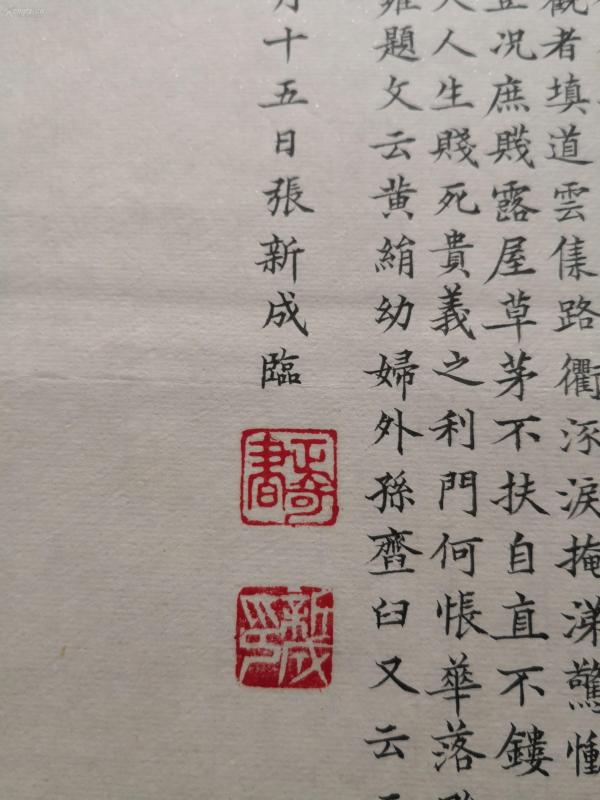 觀者填道雲集路衢流淚掩涕驚慟
況庶賤露屋草茅不扶自直不鏤
人生賤死貴義之利門何悵華落
雍題文云黃絹幼婦外孫齏臼又云
月十五日張新成臨
新成印